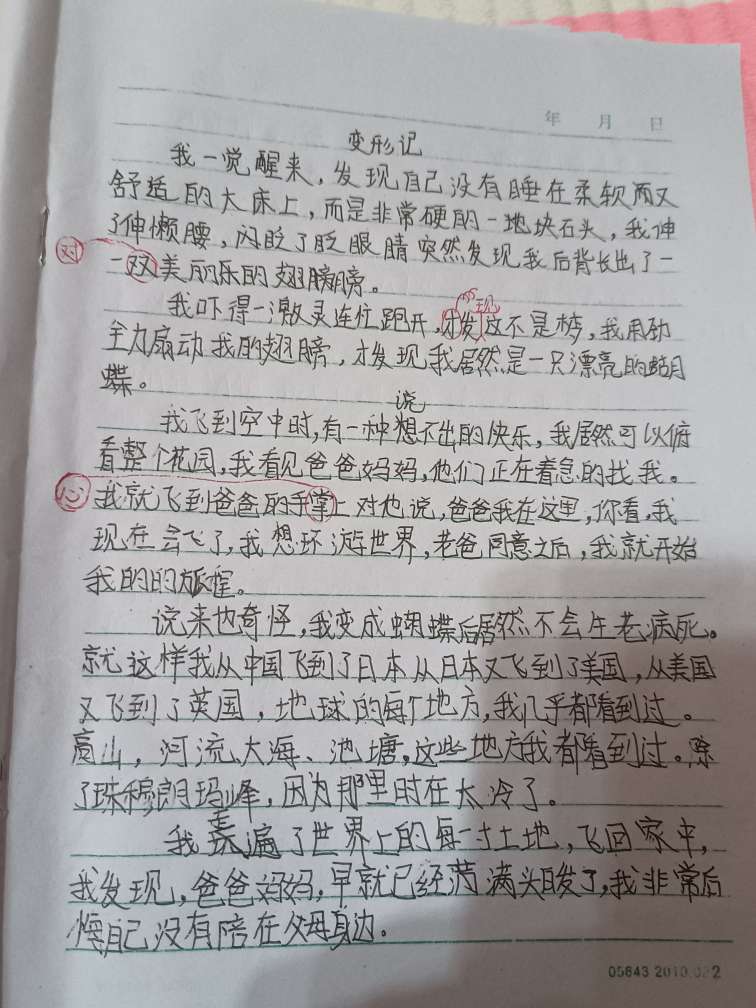 年 月 日
变形记
我一觉醒来，发现自己没有睡在柔软而又
舒适的大床上，而是非常硬的一地块石头，我伸
了伸懒腰，闪眨了眨眼睛突然发现我后背长出了一
对
一双美丽乐的翅膀膀。
现
我吓得一激灵连忙跑开，才发这不是梦，我用劲
全力扇动我的翅膀，才发现我居然是一只漂亮的蝴
蝶。
说
我飞到空中时，有一种想不出的快乐，我居然可以俯
看整个花园，我看见爸爸妈妈，他们正在着急的找我。
心
我就飞到爸爸的手掌上对他说，爸爸我在这里，你看，我
现在会飞了，我想环游世界，老爸同意之后，我就开始
我的的旅程。
说来也奇怪，我变成蝴蝶后居然不会生老病死。
就这样我从中国飞到了日本从日本又飞到了美国，从美国
又飞到了英国，地球的每个地方，我几乎都看到过。
高山，河流大海、池塘，这些地方我都看到过。除
了珠穆朗玛峰，因为那里时在太冷了。
我 遍了世界上的每一寸土地，飞回家中，
我发现，爸爸妈妈，早就已经满满头白发了，我非常后
悔自己没有陪在父母身边。
05643 2010.022